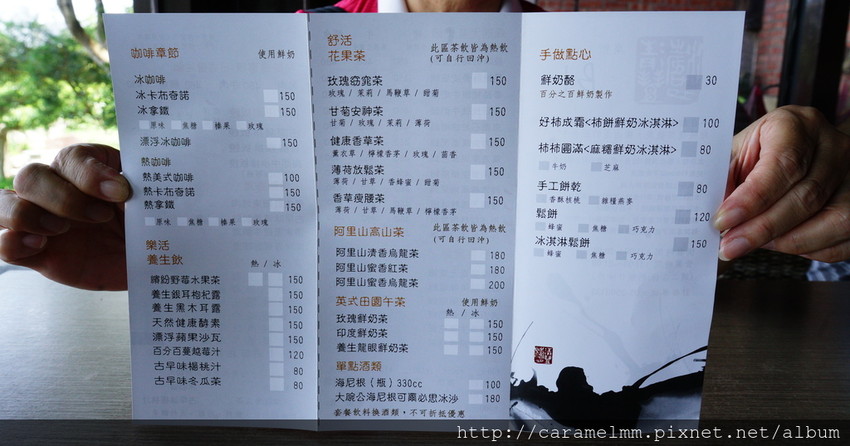 咖啡章節 使用鮮奶
冰咖啡
冰卡布奇諾 150
冰拿鐵 150
原味 / 焦糖 / 榛果 / 玫瑰
漂浮冰咖啡 150
熱咖啡
熱美式咖啡 100
熱卡布奇諾 150
熱拿鐵 150
原味 / 焦糖 / 榛果 / 玫瑰
樂活
養生飲 熱 / 冰
繽紛野莓水果茶 150
養生銀耳枸杞露 150
養生黑木耳露 150
天然健康酵素 150
漂浮蘋果沙瓦 150
百分百蔓越莓汁 120
古早味楊桃汁 80
古早味冬瓜茶 80
舒活
花果茶
此區茶飲皆為熱飲
(可自行回沖)
玫瑰窈窕茶 150
玫瑰 / 茉莉 / 馬鞭草 / 甜菊
甘菊安神茶 150
甘菊 / 玫瑰 / 茉莉 / 薄荷
健康香草茶 150
薰衣草 / 檸檬香茅 / 玫瑰 / 茴香
薄荷放鬆茶 150
薄荷 / 甘草 / 香蜂草 / 甜菊
香草瘦腰茶 150
薄荷 / 甘草 / 馬鞭草 / 檸檬香茅
阿里山高山茶
此區茶飲皆為熱飲
(可自行回沖)
阿里山清香烏龍茶 180
阿里山蜜香紅茶 180
阿里山蜜香烏龍茶 200
英式田園午茶 使用鮮奶
熱 / 冰
玫瑰鮮奶茶 150
印度鮮奶茶 150
養生龍眼鮮奶茶 150
單點酒類
海尼根（瓶）330cc 100
大碗公海尼根可爾必思冰沙 180
套餐飲料換酒類，不可折抵優惠
手做點心
鮮奶酪 30
百分之百鮮奶製作
好柿成霜<柿餅鮮奶冰淇淋> 100
柿柿圓滿<麻糬鮮奶冰淇淋> 80
牛奶 芝麻
手工餅乾 80
香酥核桃 雜糧燕麥
鬆餅 120
蜂蜜 焦糖 巧克力
冰淇淋鬆餅 150
蜂蜜 焦糖 巧克力
http://caramelmm.pixnet.net/album